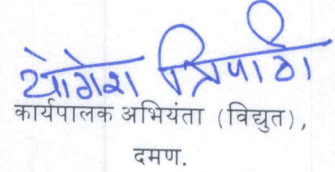 योगेश त्रिपाठी
कार्यपालक अभियंता (विद्युत),
दमण.